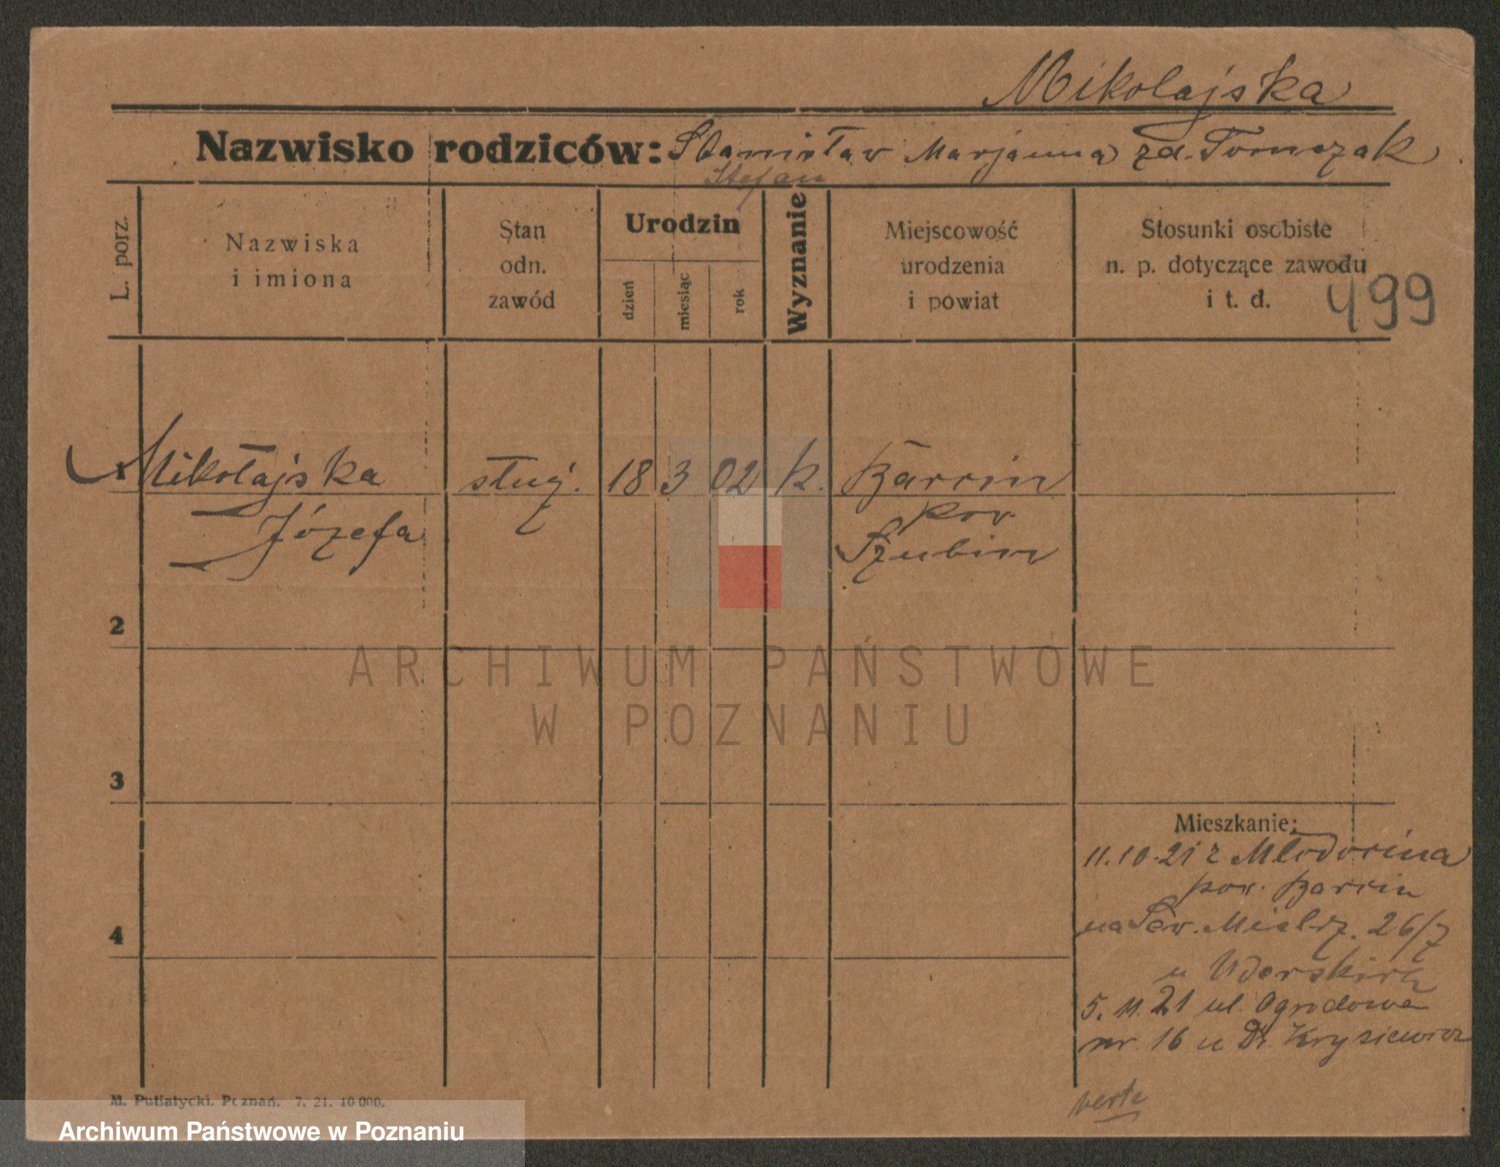 Mikolajska
Nazwisko rodziców: Stanisław Marjanna zd. Tomczak
Stefan
L. porz.
Nazwiska
i imiona
Stan
odn.
zawód
Urodzin
dzień
miesiąc
rok
Wyznanie
Miejscowość
urodzenia
i powiat
Stosunki osobiste
n. p. dotyczące zawodu
i t. d.
499
1 Mikołajska służ. 18 3 02 k. Barcin
Józefa
pow.
Szubin
2
3
4
Mieszkanie:
11.10.21 z Młodocina
pow. Barcin
na 26/7
u
5. 11. 21 ul. Ogrodowa
nr. 16 u Dr. Krysiewicz
verte
M. Putiatycki. Poznań. 7. 21. 10 000.
ARCHIWUM PAŃSTWOWE
W POZNANIU
Archiwum Państwowe w Poznaniu